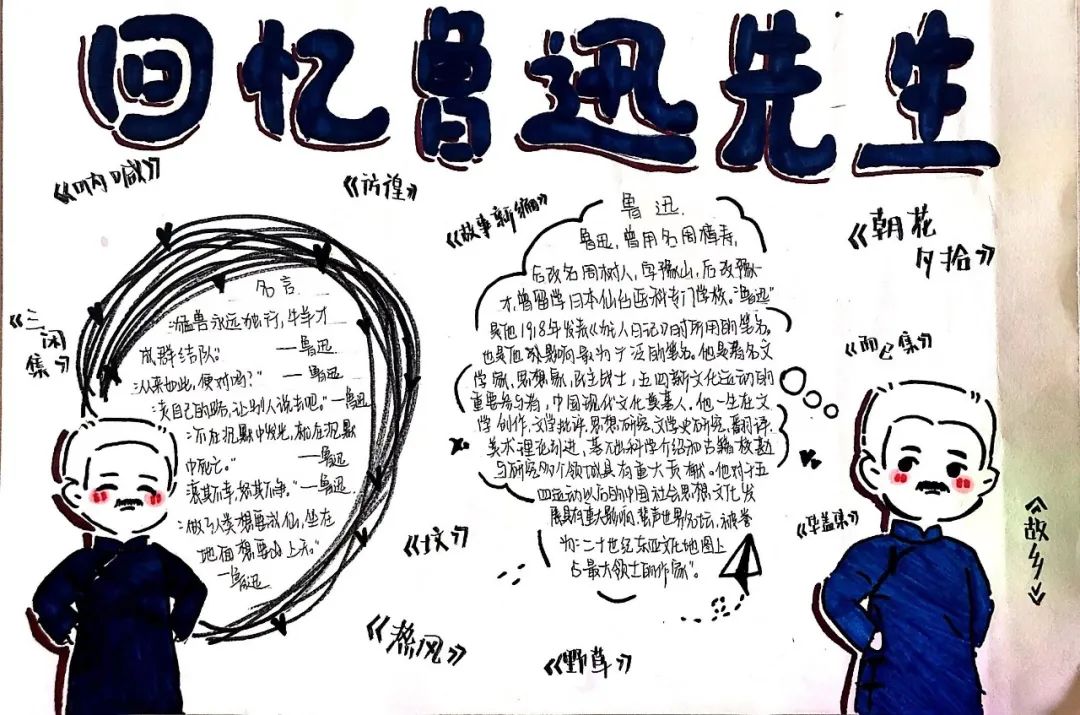 回忆鲁迅先生
《呐喊》
《彷徨》
《故事新编》
《朝花
夕拾》
《三
闲
集》
名言
"猛兽永远独行,牛羊才
成群结队。" ——鲁迅
"从来如此,便对吗?" ——鲁迅
"走自己的路,让别人说去吧。"—鲁迅
"不在沉默中爆发,就在沉默
中死亡。" ——鲁迅
"哀其不幸,怒其不争。"—鲁迅
"做了人类想要成仙,坐在
地面想要的上天。"
—鲁迅
鲁迅
鲁迅,曾用名周樟寿,
后改名周树人,字豫山,后改豫
才,曾留学日本仙台医科专门学校。"鲁迅"
是他1918年发表《狂人日记》时所用的笔名,
也是他影响最为广泛的笔名。他是著名文
学家,思想家,民主战士,五四新文化运动的
重要参与者,中国现代文化奠基人。他一生在文
学创作,文学批评,思想研究,文学史研究,翻译,
美术理论引进,基础科学介绍和古籍校勘
与研究多个领域具有重大贡献。他对于五
四运动以后的中国社会思想文化发
展具有重大影响,蜚声世界名坛,被誉
为:二十世纪东亚文化地图上
占最大领土的作家"。
《而已集》
《华盖集》
《故乡》
《坟》
《热风》
《野草》